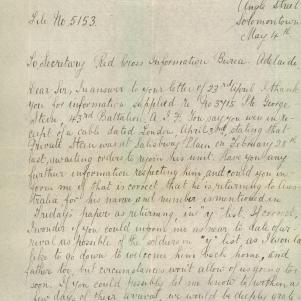 Angle Street
File No 5153. Solomontown
May 4th
To Secretary Red Cross Information Bureau Adelaide
Dear Sir, In answer to your letter of 23rd April I thank
you for information supplied re No 3715 Pte George
Stein, 43rd Battalion A.I.F. You say you were in re-
ceipt of a cable dated London, April 3rd, stating that
Private Stein was at Salisbury Plain on February 28th
last, awaiting orders to rejoin his unit. Have you any
further information respecting him, and could you in
form me if that is correct that he is returning to Aus
tralia for his name and number is mentioned in
Friday's paper as returning, in "y" list, if correct,
I wonder if you could inform me as near to date of ar-
rival as possible of the soldiers on "y" list, as I would
like to go down to welcome him back home, and
father too, but circumstances wont allow of us going too
soon. If you could possibly let me know to within a
few days of their arrival, we would be deeply